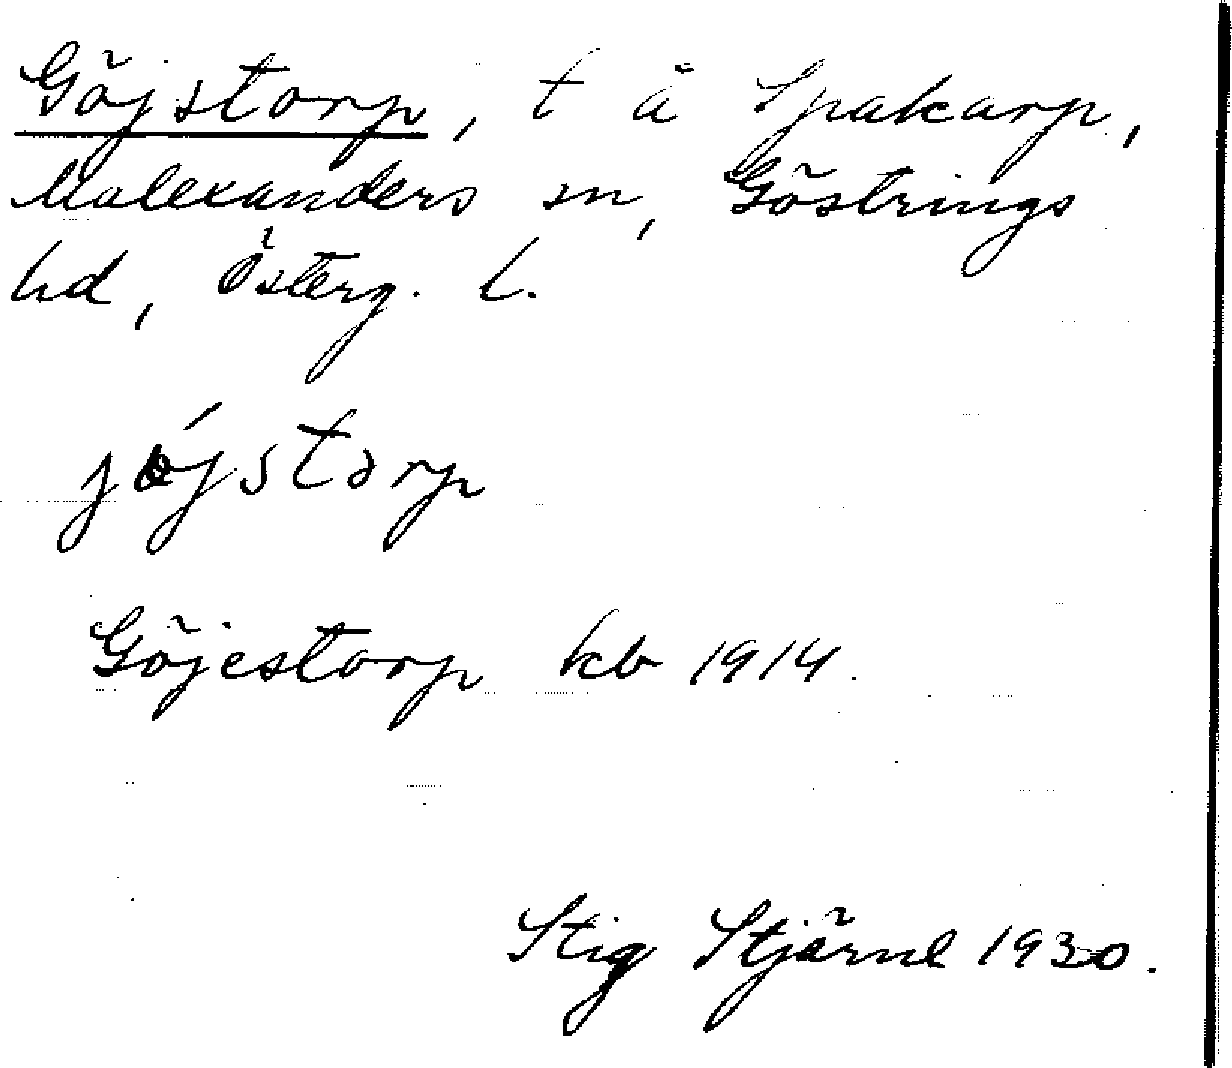 Göjstorp, t å Spakarp,
Malexanders sn, Göstrings
hd, Österg. l.
jöjstorp
Göjestorp kb 1914.
Stig Stjärne 1930.